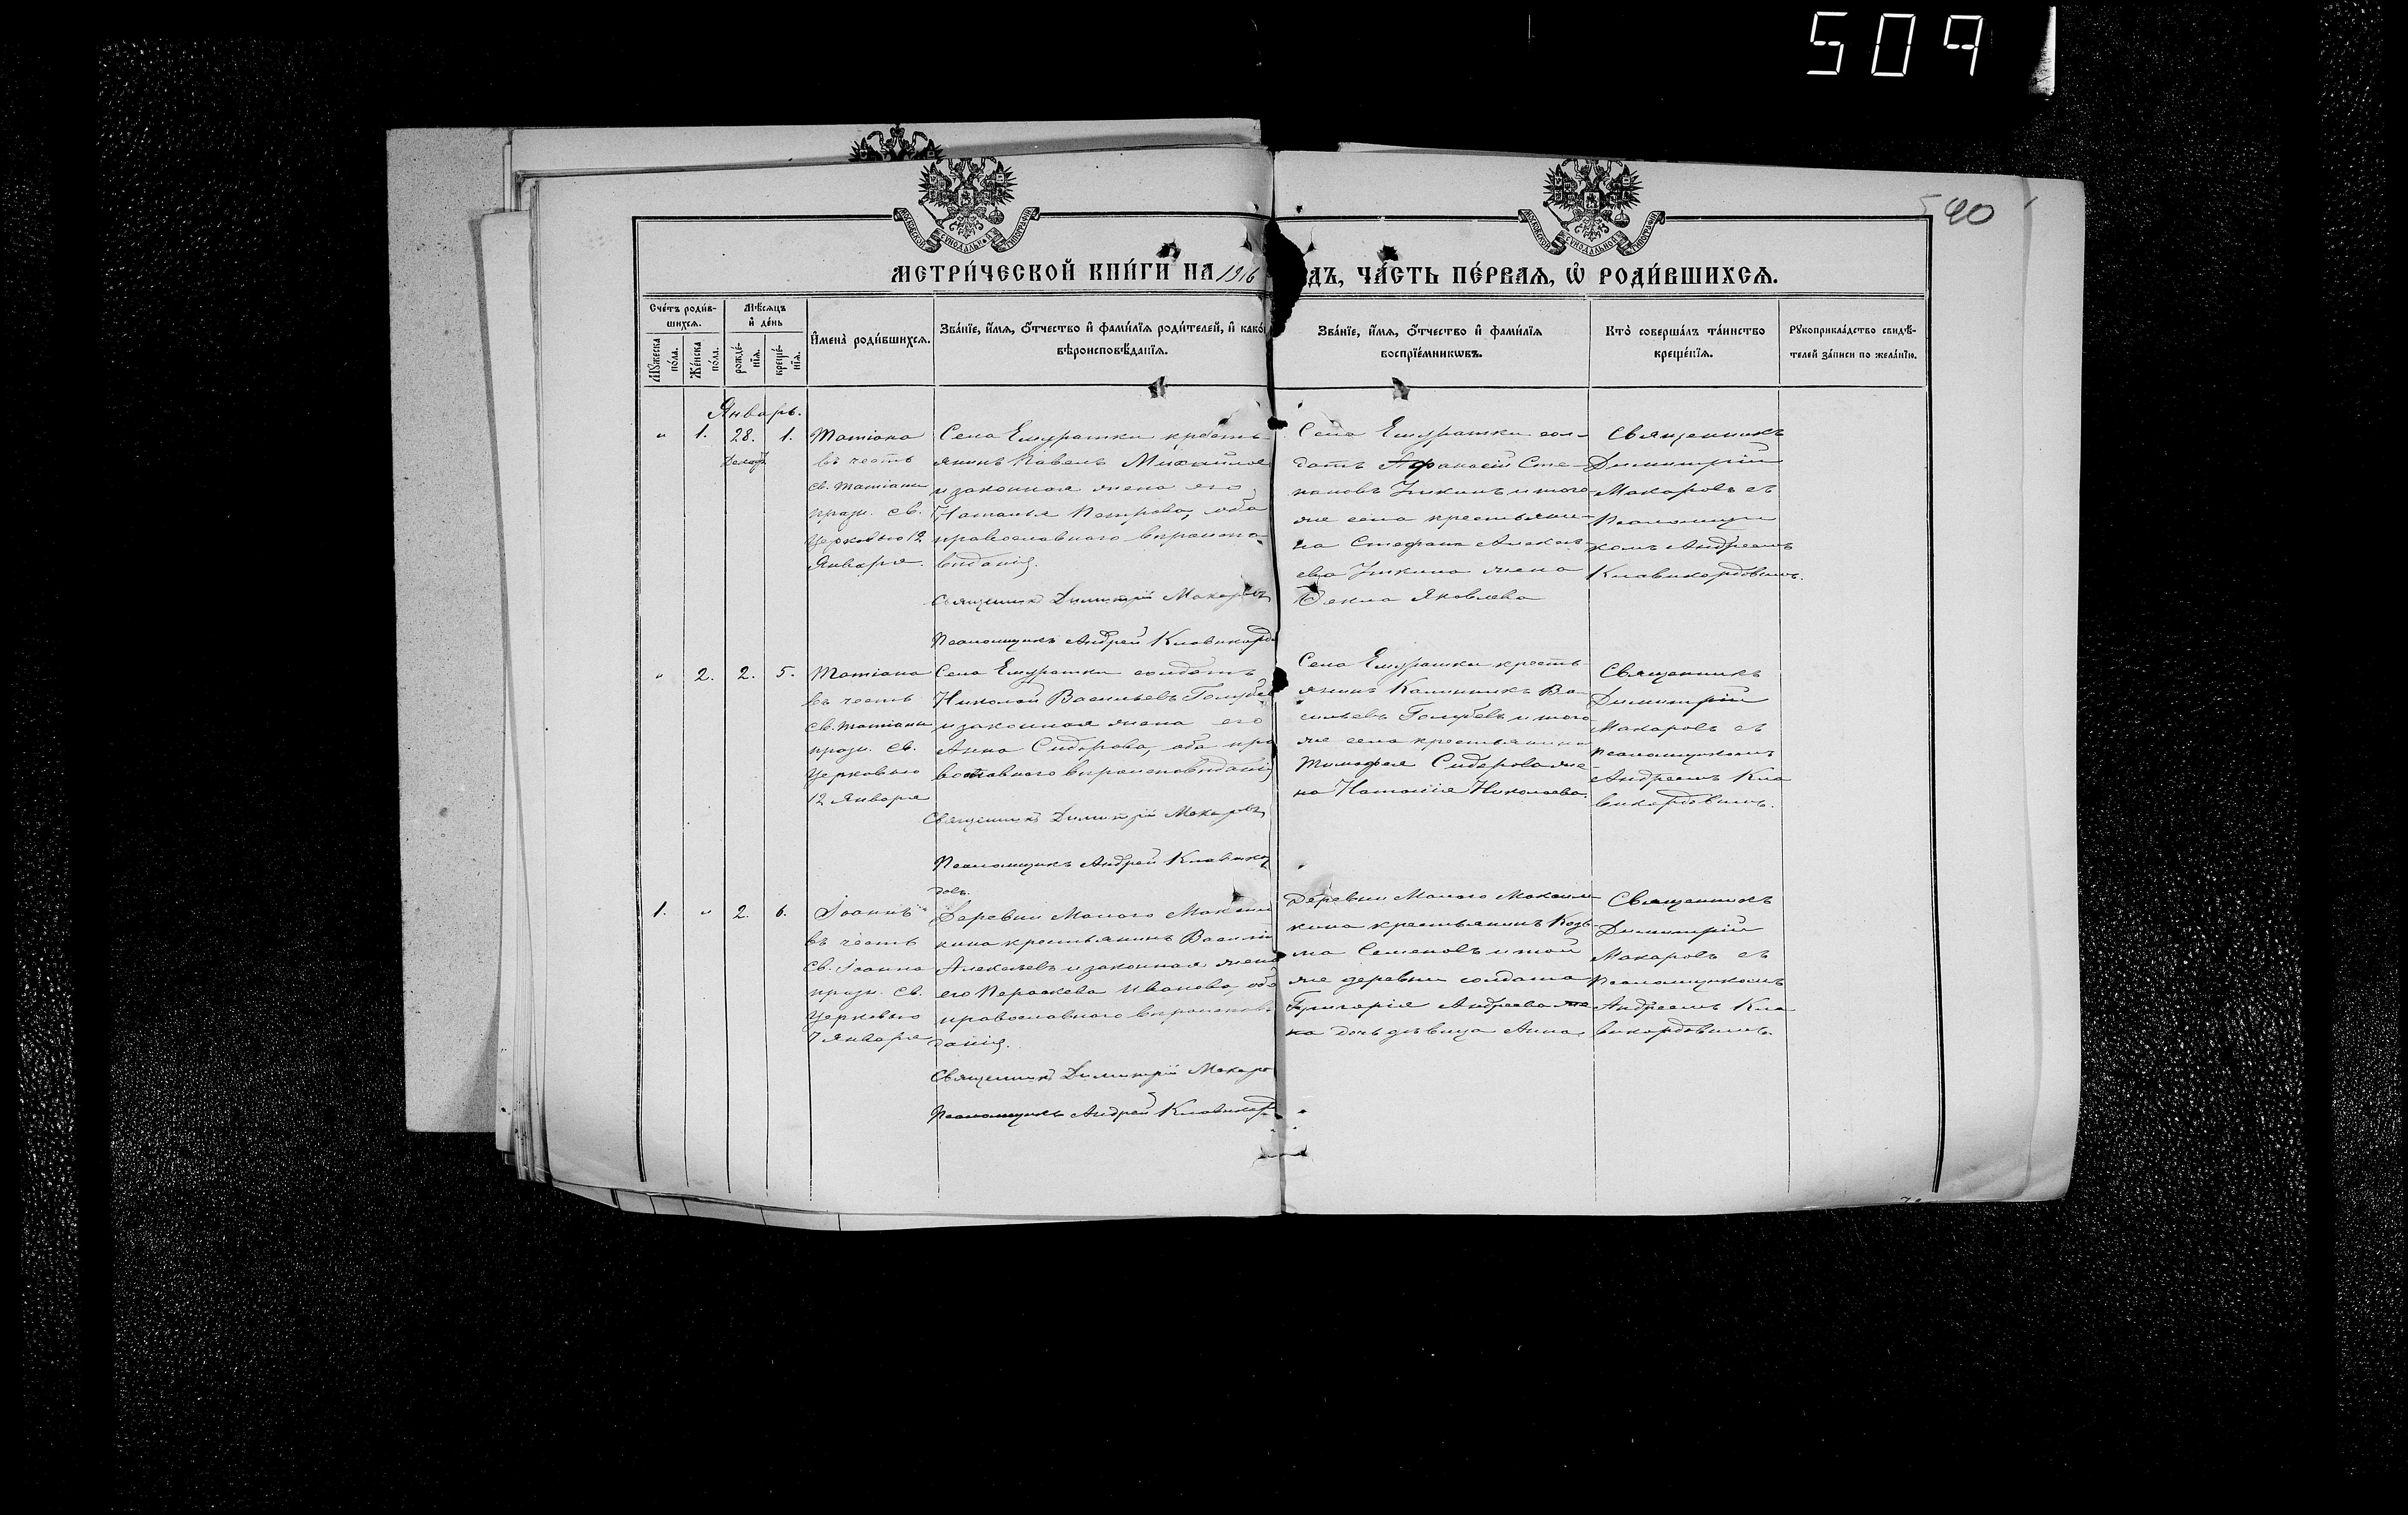 509
540
МОСКОВСКОЙ СѴНОДАЛЬНОЙ ТИПОГРАФІИ
МОСКОВСКОЙ СѴНОДАЛЬНОЙ ТИПОГРАФІИ
МЕТРИ́ЧЕСКОЙ КНИ́ГИ НА 1916
ДЪ, ЧА́СТЬ ПЕ́РВАЯ, Ѡ҆ РОДИ́ВШИХСЯ.
Сче́тъ роди́в-
шихся.
Мꙋ́жеска
по́ла.
Же́нска
по́ла.
Мѣ́сяцъ
и҆ де́нь
рожде́-
нїя.
креще́-
нїя.
И҆мена̀ роди́вшихся.
Зва́нїе, и҆́мя, ѻ҆́тчество и҆ фами́лїя роди́телей, и҆ како́
вѣроисповѣ́данїя.
Зва́нїе, и҆́мя, ѻ҆́тчество и҆ фами́лїя
воспрїе́мникѡвъ.
Кто̀ соверша́лъ та́инство
креще́нїя.
Рꙋкоприкла́дство свидѣ́-
телей за́писи по жела́нїю.
Январь.
„ 1. 28. 1.
Декабр.
Татіана
въ честь
св. Татіаны
празн. св.
Церковью 12
Января.
Села Емурташки кресть-
янинъ Павелъ Михайлов
и законная жена его
Наталья Петрова, оба
православнаго вѣроиспо
вѣданія.
Священникъ Димитрій Макаровъ
Псаломщикъ Андрей Клавикордо
Села Емурташки сол-
датъ Афанасій Сте-
пановъ Уткинъ и того
же села крестьяни-
на Стефана Алексѣ-
ева Уткина жена
Ѳекла Яковлева
Священникъ
Димитрій
Макаровъ съ
Псаломщи
комъ Андреемъ
Клавикордовымъ.
„ 2. 2. 5.
Татіана
въ честь
св. Татіаны
празн. св.
Церковью
12 Января
Села Емурташки солдатъ
Николай Васильевъ Голубев
и законная жена его
Анна Сидорова, оба пра
вославнаго вѣроисповѣданія
Священникъ Димитрій Макаровъ
Псаломщикъ Андрей Клавикор
довъ.
Села Емурташки кресть-
янинъ Каллиникъ Ва-
сильевъ Голубевъ и того
же села крестьянина
Тимофея Сидорова же-
на Наталія Николаева.
Священникъ
Димитрій
Макаровъ съ
псаломщикомъ
Андреемъ Кла
викордовымъ.
1. „ 2. 6.
Іоаннъ
въ честь
св. Іоанна
празн. св.
Церковью
7 Января
Деревни Малого Максим
кина крестьянинъ Василій
Алексѣевъ и законная жена
его Параскева Иванова, оба
православнаго вѣроисповѣ
данія.
Священникъ Димитрій Макаро
Псаломщикъ Андрей Клавикорд
Деревни Малого Максим
кина крестьянинъ Козь-
ма Семеновъ и той
же деревни солдата
Григорія Андреева же
на дочь дѣвица Анна
Священникъ
Димитрій
Макаровъ съ
Псаломщикомъ
Андреемъ Кла
викордовымъ.